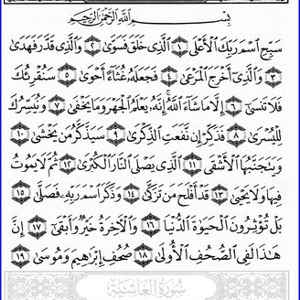 بِسْمِ اللَّهِ الرَّحْمَٰنِ الرَّحِيمِ
سَبِّحِ اسْمَ رَبِّكَ الْأَعْلَى ١ الَّذِي خَلَقَ فَسَوَّىٰ ٢ وَالَّذِي قَدَّرَ فَهَدَىٰ
٣ وَالَّذِي أَخْرَجَ الْمَرْعَىٰ ٤ فَجَعَلَهُ غُثَاءً أَحْوَىٰ ٥ سَنُقْرِئُكَ
فَلَا تَنْسَىٰ ٦ إِلَّا مَا شَاءَ اللَّهُ إِنَّهُ يَعْلَمُ الْجَهْرَ وَمَا يَخْفَىٰ ٧ وَنُيَسِّرُكَ
لِلْيُسْرَىٰ ٨ فَذَكِّرْ إِنْ نَفَعَتِ الذِّكْرَىٰ ٩ سَيَذَّكَّرُ مَنْ يَخْشَىٰ ١٠
وَيَتَجَنَّبُهَا الْأَشْقَى ١١ الَّذِي يَصْلَى النَّارَ الْكُبْرَىٰ ١٢ ثُمَّ لَا يَمُوتُ
فِيهَا وَلَا يَحْيَىٰ ١٣ قَدْ أَفْلَحَ مَنْ تَزَكَّىٰ ١٤ وَذَكَرَ اسْمَ رَبِّهِ فَصَلَّىٰ ١٥
بَلْ تُؤْثِرُونَ الْحَيَاةَ الدُّنْيَا ١٦ وَالْآخِرَةُ خَيْرٌ وَأَبْقَىٰ ١٧ إِنَّ
هَٰذَا لَفِي الصُّحُفِ الْأُولَىٰ ١٨ صُحُفِ إِبْرَاهِيمَ وَمُوسَىٰ ١٩
سُورَةُ الْغَاشِيَةِ